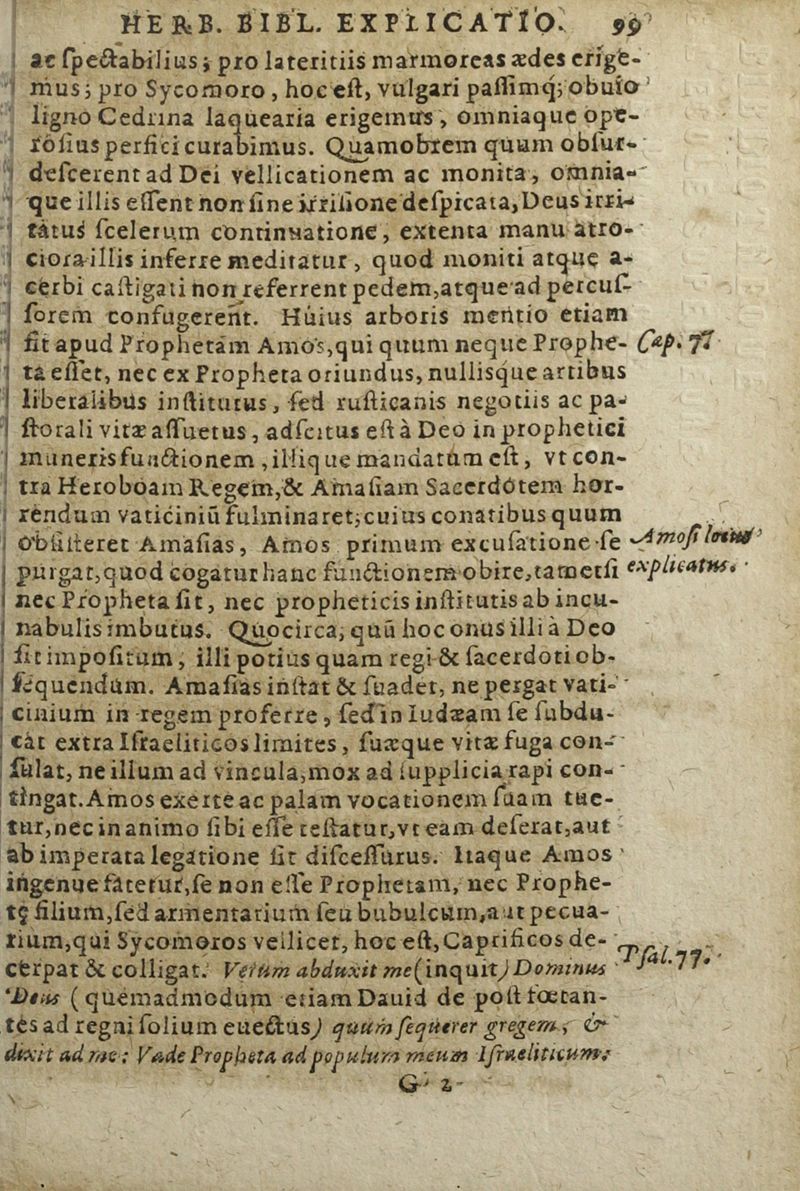 HERB. BIBL. EXPLICATIO. 99
ac ſpectabilius; pro lateritiis marmoreas ædes erige-
mus; pro Sycomoro, hoc eſt, vulgari paſſimq; obuio
ligno Cedrina laquearia erigemus, omniaque ope-
roſius perfici curabimus. Quamobrem quum obſur-
deſcerent ad Dei vellicationem ac monita, omnia-
que illis eſſent non ſine irriſione deſpicata, Deus irri-
tatus ſcelerum continuatione, extenta manu atro-
ciora illis inferre meditatur, quod moniti atque a-
cerbi caſtigati non referrent pedem, atque ad percuſ-
ſorem confugerent. Huius arboris mentio etiam
fit apud Prophetam Amos, qui quum neque Prophe- Cap. 77
ta eſſet, nec ex Propheta oriundus, nullisque artibus
liberalibus inſtitutus, ſed ruſticanis negotiis ac pa-
ſtorali vitæ aſſuetus, adſcitus eſt à Deo in prophetici
muneris functionem, illique mandatum eſt, vt con-
tra Heroboam Regem, & Amaſiam Sacerdotem hor-
rendum vaticiniũ fulminaret; cuius conatibus quum
obſiſteret Amaſias, Amos primum excuſatione ſe Amoſi locus
purgat, quod cogatur hanc functionem obire, tametſi explicatus.
nec Propheta ſit, nec propheticis inſtitutis ab incu-
nabulis imbutus. Quocirca, quũ hoc onus illi à Deo
ſit impoſitum, illi potius quam regi & ſacerdoti ob-
ſequendum. Amaſias inſtat & ſuadet, ne pergat vati-
cinium in regem proferre, ſed in Iudæam ſe ſubdu-
cat extra Iſraeliticos limites, ſuæque vitæ fuga con-
ſulat, ne illum ad vincula, mox ad ſupplicia rapi con-
tingat. Amos exerte ac palam vocationem ſuam tue-
tur, nec in animo ſibi eſſe teſtatur, vt eam deſerat, aut
ab imperata legatione ſit diſceſſurus. Itaque Amos
ingenue fatetur, ſe non eſſe Prophetam, nec Prophe-
tę filium, ſed armentarium ſeu bubulcum, aut pecua-
rium, qui Sycomoros vellicet, hoc eſt, Caprificos de-
cerpat & colligat. Verum abduxit me (inquit) Dominus Pſal. 77.
Deus (quemadmodum etiam Dauid de poſt fœtan-
tes ad regni ſolium euectus) quum ſequerer gregem, &
dixit ad me: Vade Propheta ad populum meum Iſraeliticum:
G 2